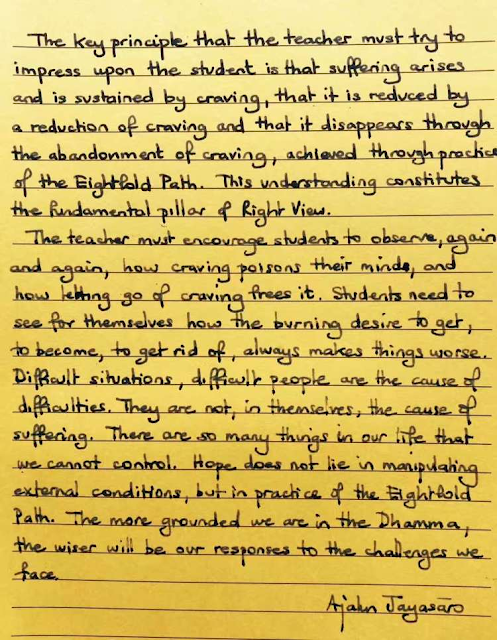 The key principle that the teacher must try to
impress upon the student is that suffering arises
and is sustained by craving, that it is reduced by
a reduction of craving and that it disappears through
the abandonment of craving, achieved through practice
of the Eightfold Path. This understanding constitutes
the fundamental pillar of Right View.
The teacher must encourage students to observe, again
and again, how craving poisons their minds, and
how letting go of craving frees it. Students need to
see for themselves how the burning desire to get,
to become, to get rid of, always makes things worse.
Difficult situations, difficult people are the cause of
difficulties. They are not, in themselves, the cause of
suffering. There are so many things in our life that
we cannot control. Hope does not lie in manipulating
external conditions, but in practice of the Eightfold
Path. The more grounded we are in the Dhamma,
the wiser will be our responses to the challenges we
face.
Ajahn Jayasāro